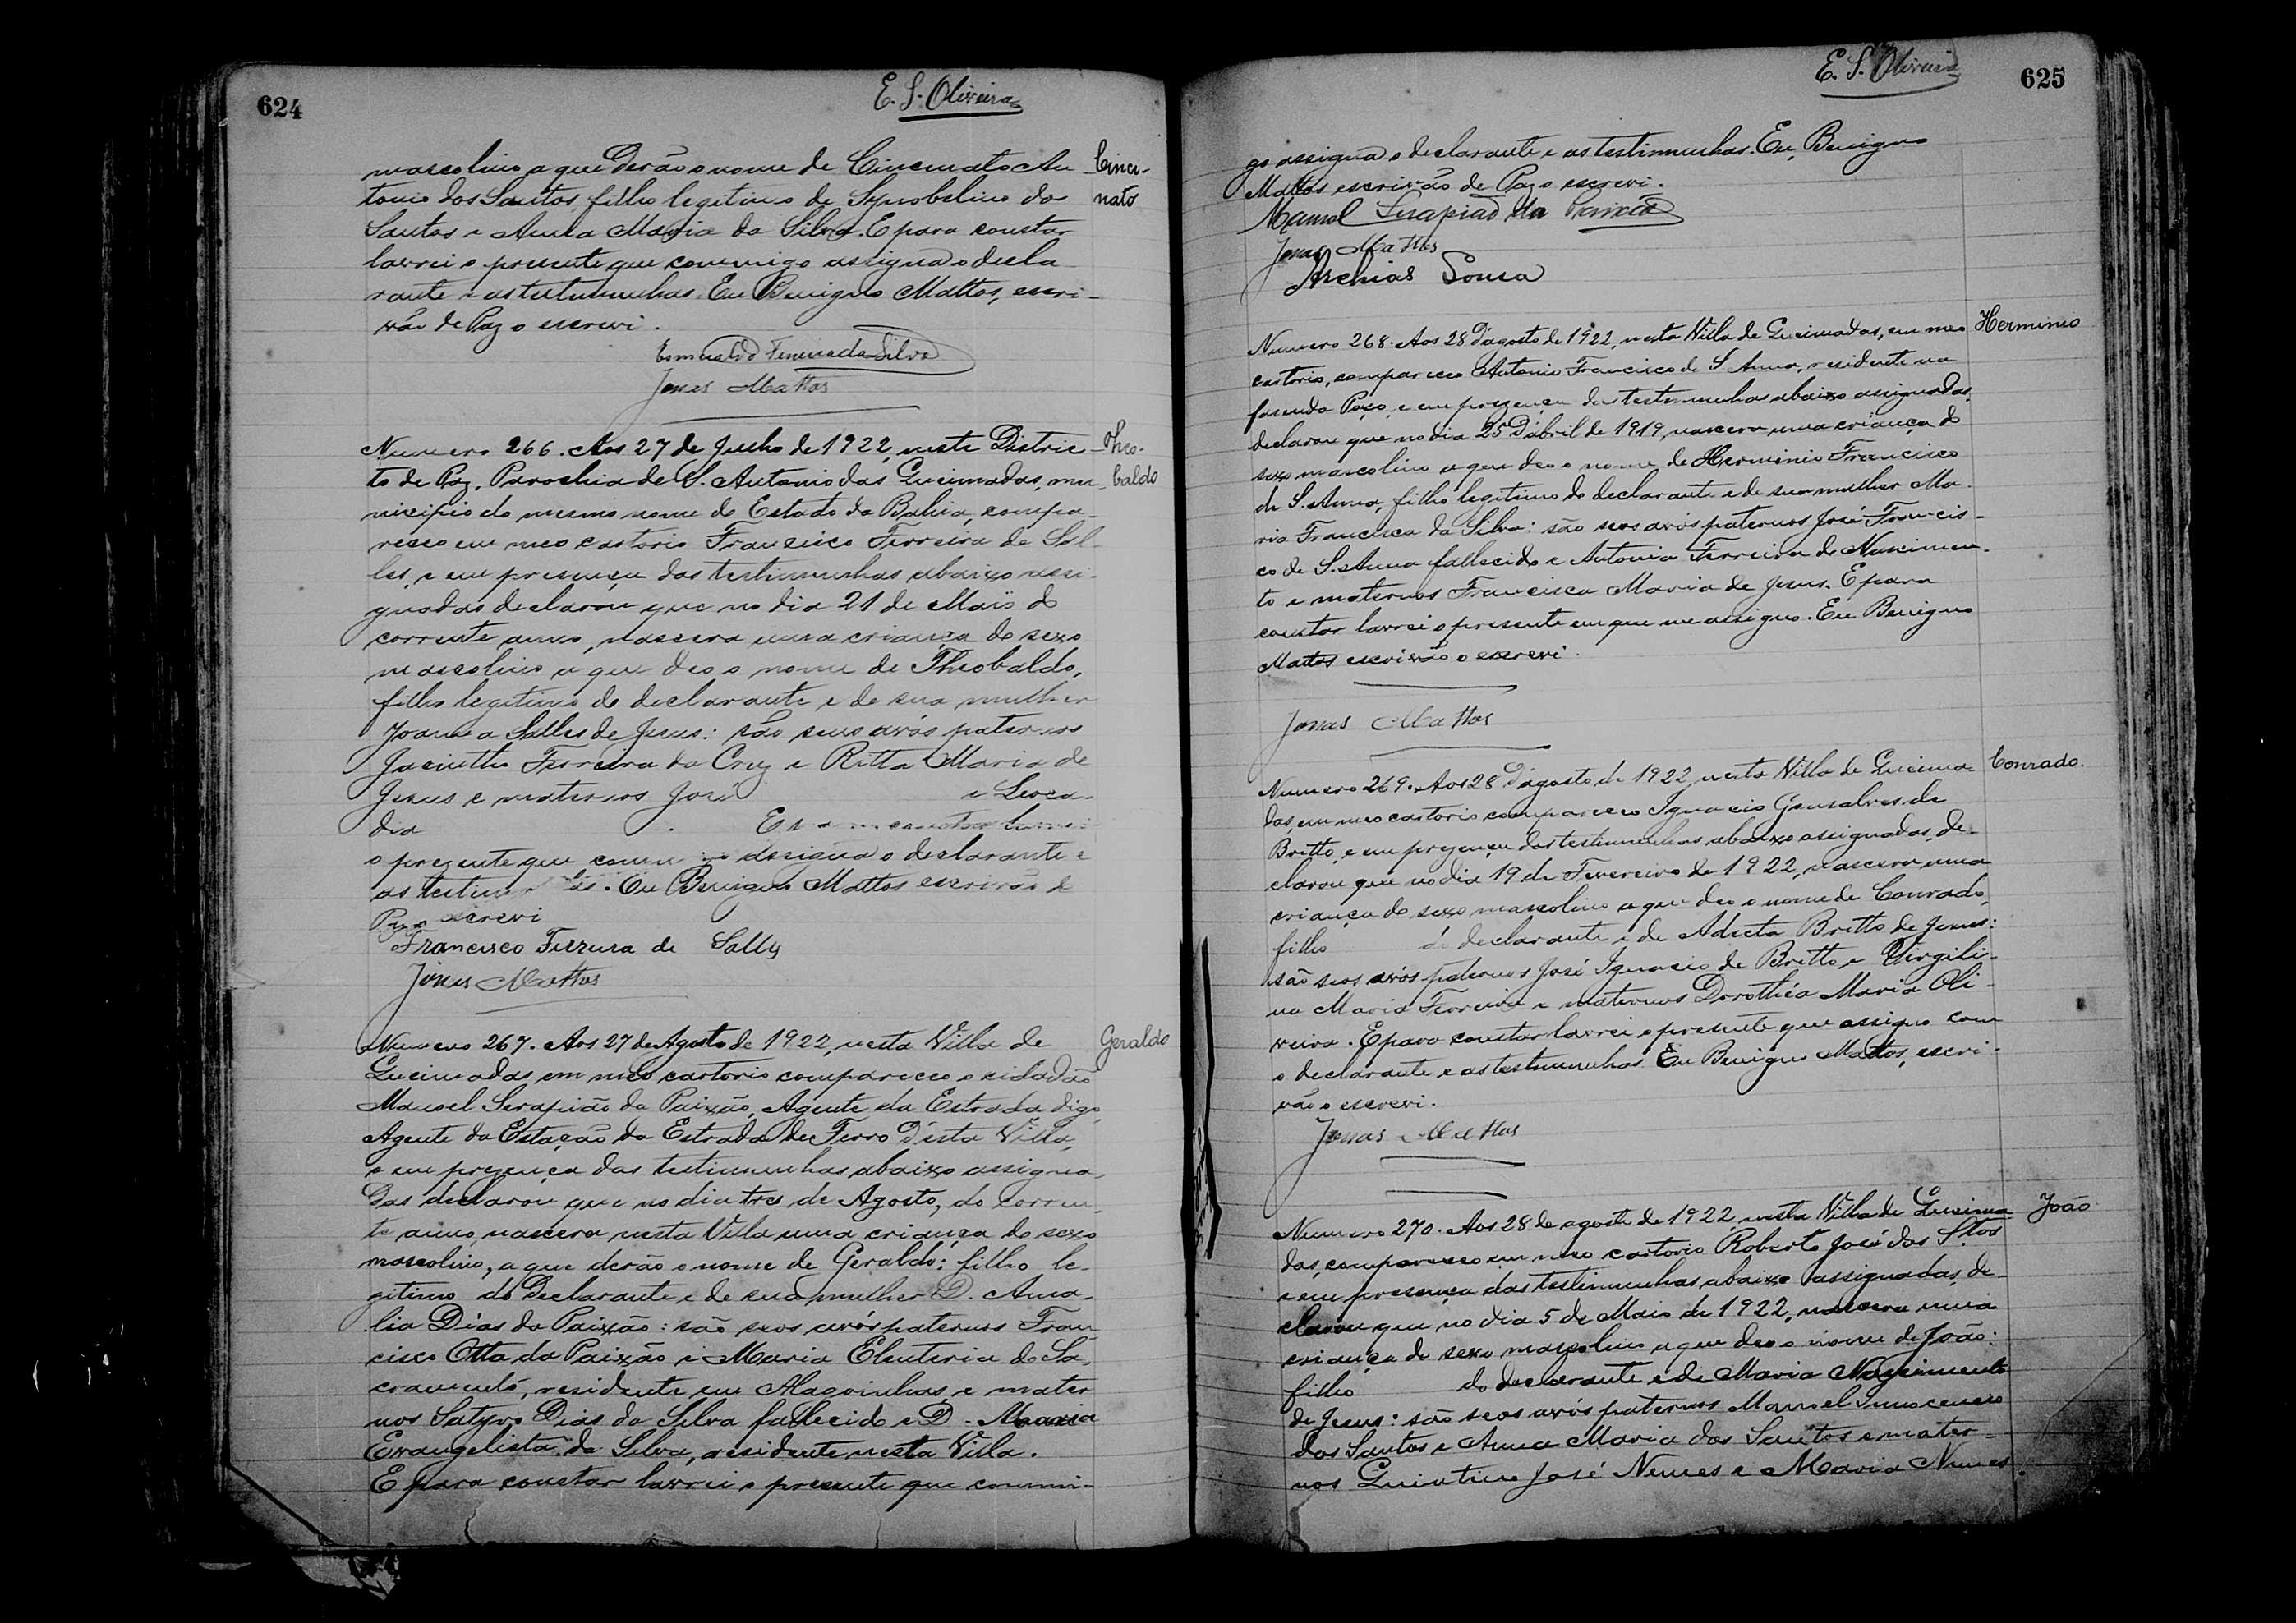 624
E. S. Oliveira
masculino a que derão o nome de Cincinato An
Cinci-
nato
tonio dos Santos, filho legitimo de Synobelino dos
Santos e Anna Maria da Silva. E para constar
lavrei o presente que commigo assigna o decla
rante e as testimunhas. Eu Benigno Mattos, escri-
vão de Paz o escrevi.
Silva
Jonas Mattos
Numero 266. Aos 27 de Julho de 1922, neste Distric
Theo-
baldo
to de Paz, Parochia de S. Antonio das Queimadas, mu
nicipio do mesmo nome do Estado da Bahia, compa-
receo em meo cartorio Francisco Ferreira de Sal-
les, e em presença das testimunhas abaixo assi-
gnadas declarou que no dia 21 de Maio do
corrente anno, nascera uma criança do sexo
masculino a que deo o nome de Theobaldo,
filho legitimo do declarante e de sua mulher
Joanna Salles de Jesus: são seus avós paternos
Jacintho Ferreira da Cruz e Ritta Maria de
Jesus e maternos José e Leoca-
dia . E para constar lavrei
o prezente que assigna o declarante e
as . Eu Benigno Mattos escrivão de
Paz o escrevi
Francisco Ferreira de Salles
Jonas Mattos
Numero 267. Aos 27 de Agosto de 1922, nesta Villa de
Geraldo
Queimadas em meo cartorio compareceo o cidadão
Manoel Serapião da Paixão, Agente da Estrada digo
Agente da Estação da Estrada de Ferro D'esta Villa,
e em prezença das testimunhas abaixo assigna-
das declarou que no dia tres de Agosto, do corren-
te anno, nascera nesta Villa uma criança do sexo
masculino, a que derão o nome de Geraldo: filho le-
gitimo do Declarante e de sua mulher D. Ama-
lia Dias da Paixão: são seos avós paternos Fran
cisco Otta da Paixão e Maria Eleuteria do Sa-
cramento, residente em Alagoinhas, e mater
nos Satyro Dias da Silva fallecido e D. Maria
Evangelista da Silva, residente nesta Villa.
E para constar lavrei o presente que commi-
E. S. Oliveira
625
go assigna o declarante e as testimunhas. Eu, Benigno
Mattos escrivão de Paz o escrevi.
Manoel Serapião da Paixão
Jonas Mattos
Archias Sousa
Numero 268. Aos 28 D'agosto de 1922, nesta Villa de Queimadas, em meo
Herminio
cartorio, compareceo Antonio Francisco de S. Anna, residente na
fasenda Poço, e em prezença das testimunhas abaixo assignadas,
declarou que no dia 25 D'abril de 1919, nascera uma criança do
sexo masculino a que deo o nome de Herminio Francisco
de S. Anna, filho legitimo do declarante e de sua mulher Ma-
ria Francisca da Silva: são seos avós paternos José Francis-
co de S. Anna fallecido e Antonia Ferreira do Nascimen-
to e maternos Francisca Maria de Jesus. E para
constar lavrei o presente em que me assigno. Eu Benigno
Mattos escrivão o escrevi.
Jonas Mattos
Numero 269. Aos 28 D'agosto de 1922, nesta Villa de Queima
Conrado
das, em meo cartorio compareceo Ignacio Gonsalves de
Britto, e em prezença das testimunhas abaixo assignadas, de-
clarou que no dia 19 de Fevereiro de 1922, nascera uma
criança do sexo masculino a que deo o nome de Conrado,
filho do declarante e de Britto de Jesus:
são seos avós paternos José Ignacio de Britto e Virgili-
na Maria Ferreira e maternos Dorothéa Maria Oli-
veira. E para constar lavrei o presente que assigno com
o declarante e as testimunhas. Eu Benigno Mattos, escri-
vão o escrevi.
Jonas Mattos
Numero 270. Aos 28 de agosto de 1922, nesta Villa de Queima
João
das, compareceo em meo cartorio Roberto José dos Stos
e em presença das testimunhas abaixo assignadas, de-
clarou que no dia 5 de Maio de 1922, nascera uma
criança do sexo masculino a que deo o nome de João:
filho do declarante e de Maria Nascimento
de Jesus: são seos avós paternos Manoel Innocencio
dos Santos e Anna Maria dos Santos e mater-
nos Quintino José Nunes e Maria Nunes